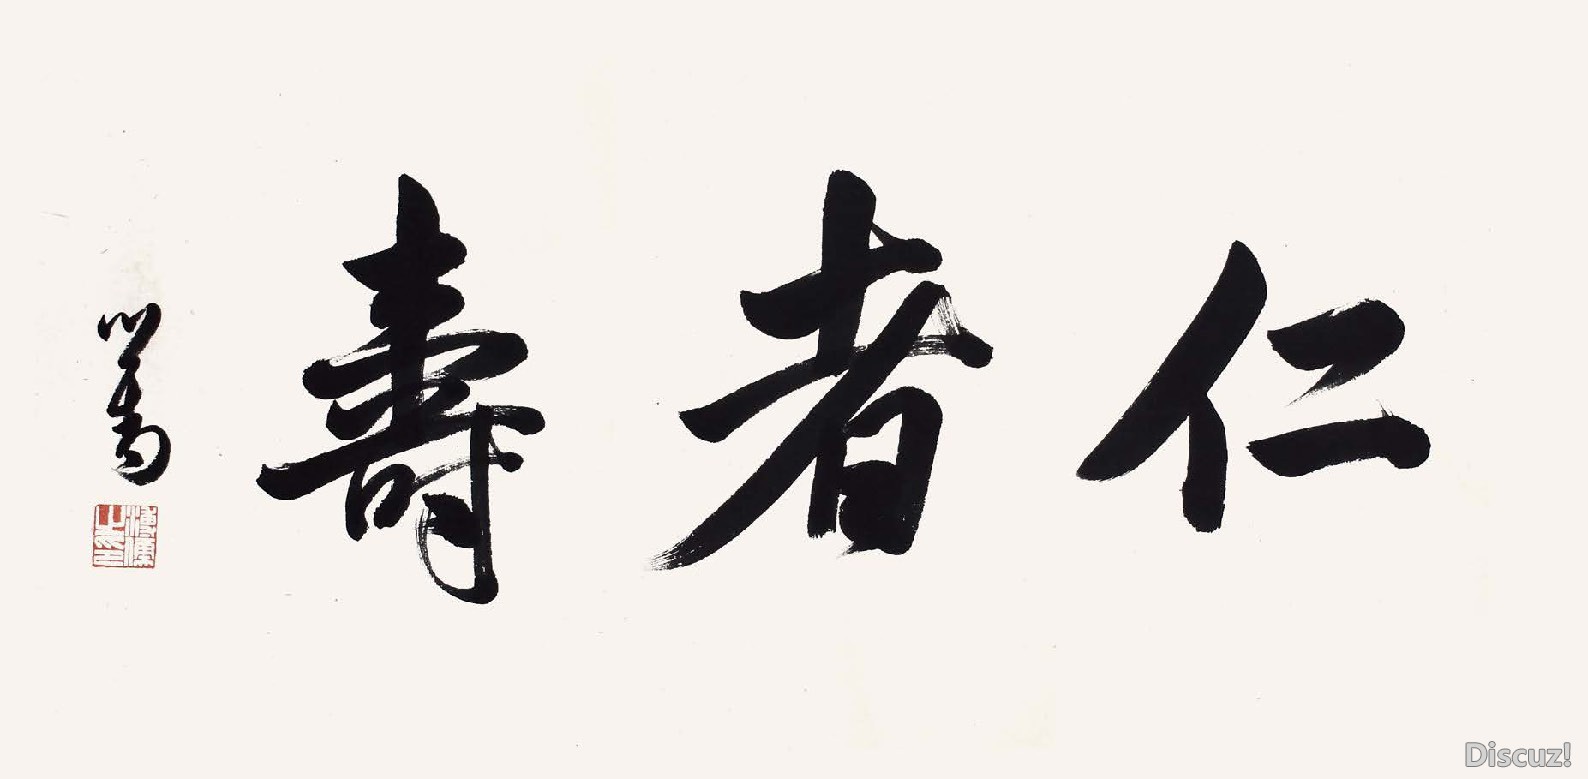 仁者壽
心畬
Discuz!